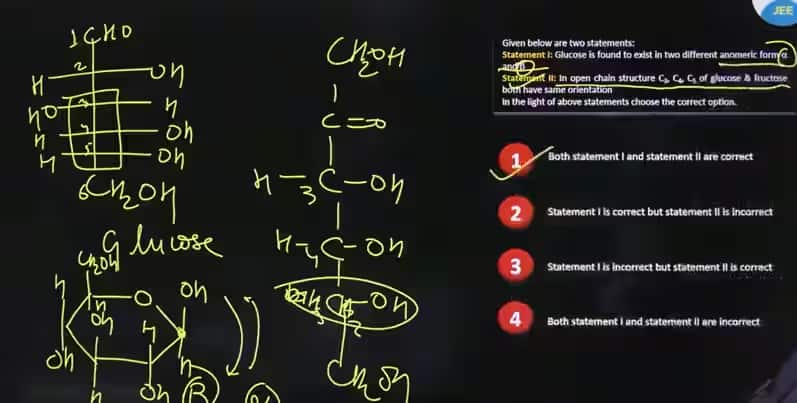 JEE
Given below are two statements:
Statement I: Glucose is found to exist in two different anomeric form α
and β
Statement II: In open chain structure C₃, C₄, C₅ of glucose & fructose
both have same orientation
In the light of above statements choose the correct option.
1 Both statement I and statement II are correct
2 Statement I is correct but statement II is incorrect
3 Statement I is incorrect but statement II is correct
4 Both statement I and statement II are incorrect
1CHO
2
H OH
HO 3 H
H 4 OH
H 5 OH
6CH2OH
Glucose
CH2OH
H O OH
H
OH H
OH H
H OH
B
CH2OH
C=O
H-3C-OH
H-4C-OH
C-OH
CH2OH